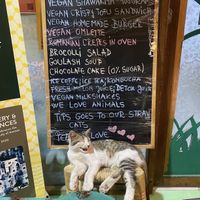 VEGAN SHAWARMA
VEGAN CRISPY TOFU SANDWICH
VEGAN HOMEMADE BURGER
VEGAN OMLETTE
CREPES IN OVEN
BROCOLLI SALAD
GOULASH SOUP
CHOCOLATE CAKE (0% SUGAR)
ICE COFFE, ICE TEA, KOMBUCHA
FRESH JUICE, DETOX JUICE
VEGAN MILKSHAKES
WE LOVE ANIMALS
TIPS GOES TO OUR STRAY
CATS
LOVE